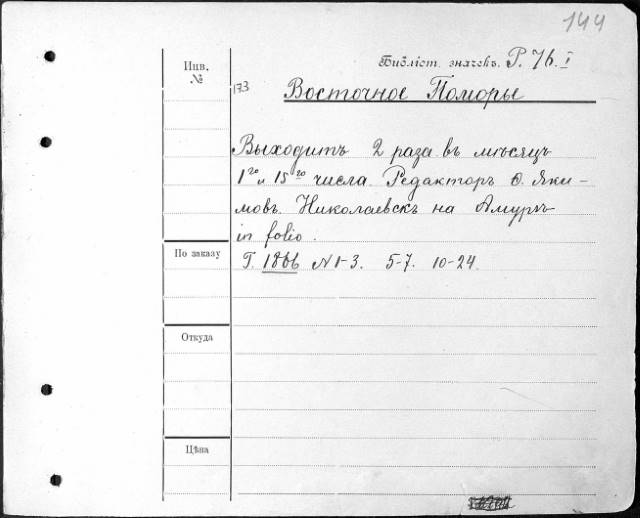 144
Библіот. значекъ. Р. 76. I
Инв.
№
173
Восточное Поморье
Выходитъ 2 раза въ мѣсяцъ
1го и 15го числа. Редакторъ Ѳ. Яки-
мовъ. Николаевскъ на Амурѣ
in folio.
По заказу
Г. 1866 N 1-3. 5-7. 10-24.
Откуда
Цѣна